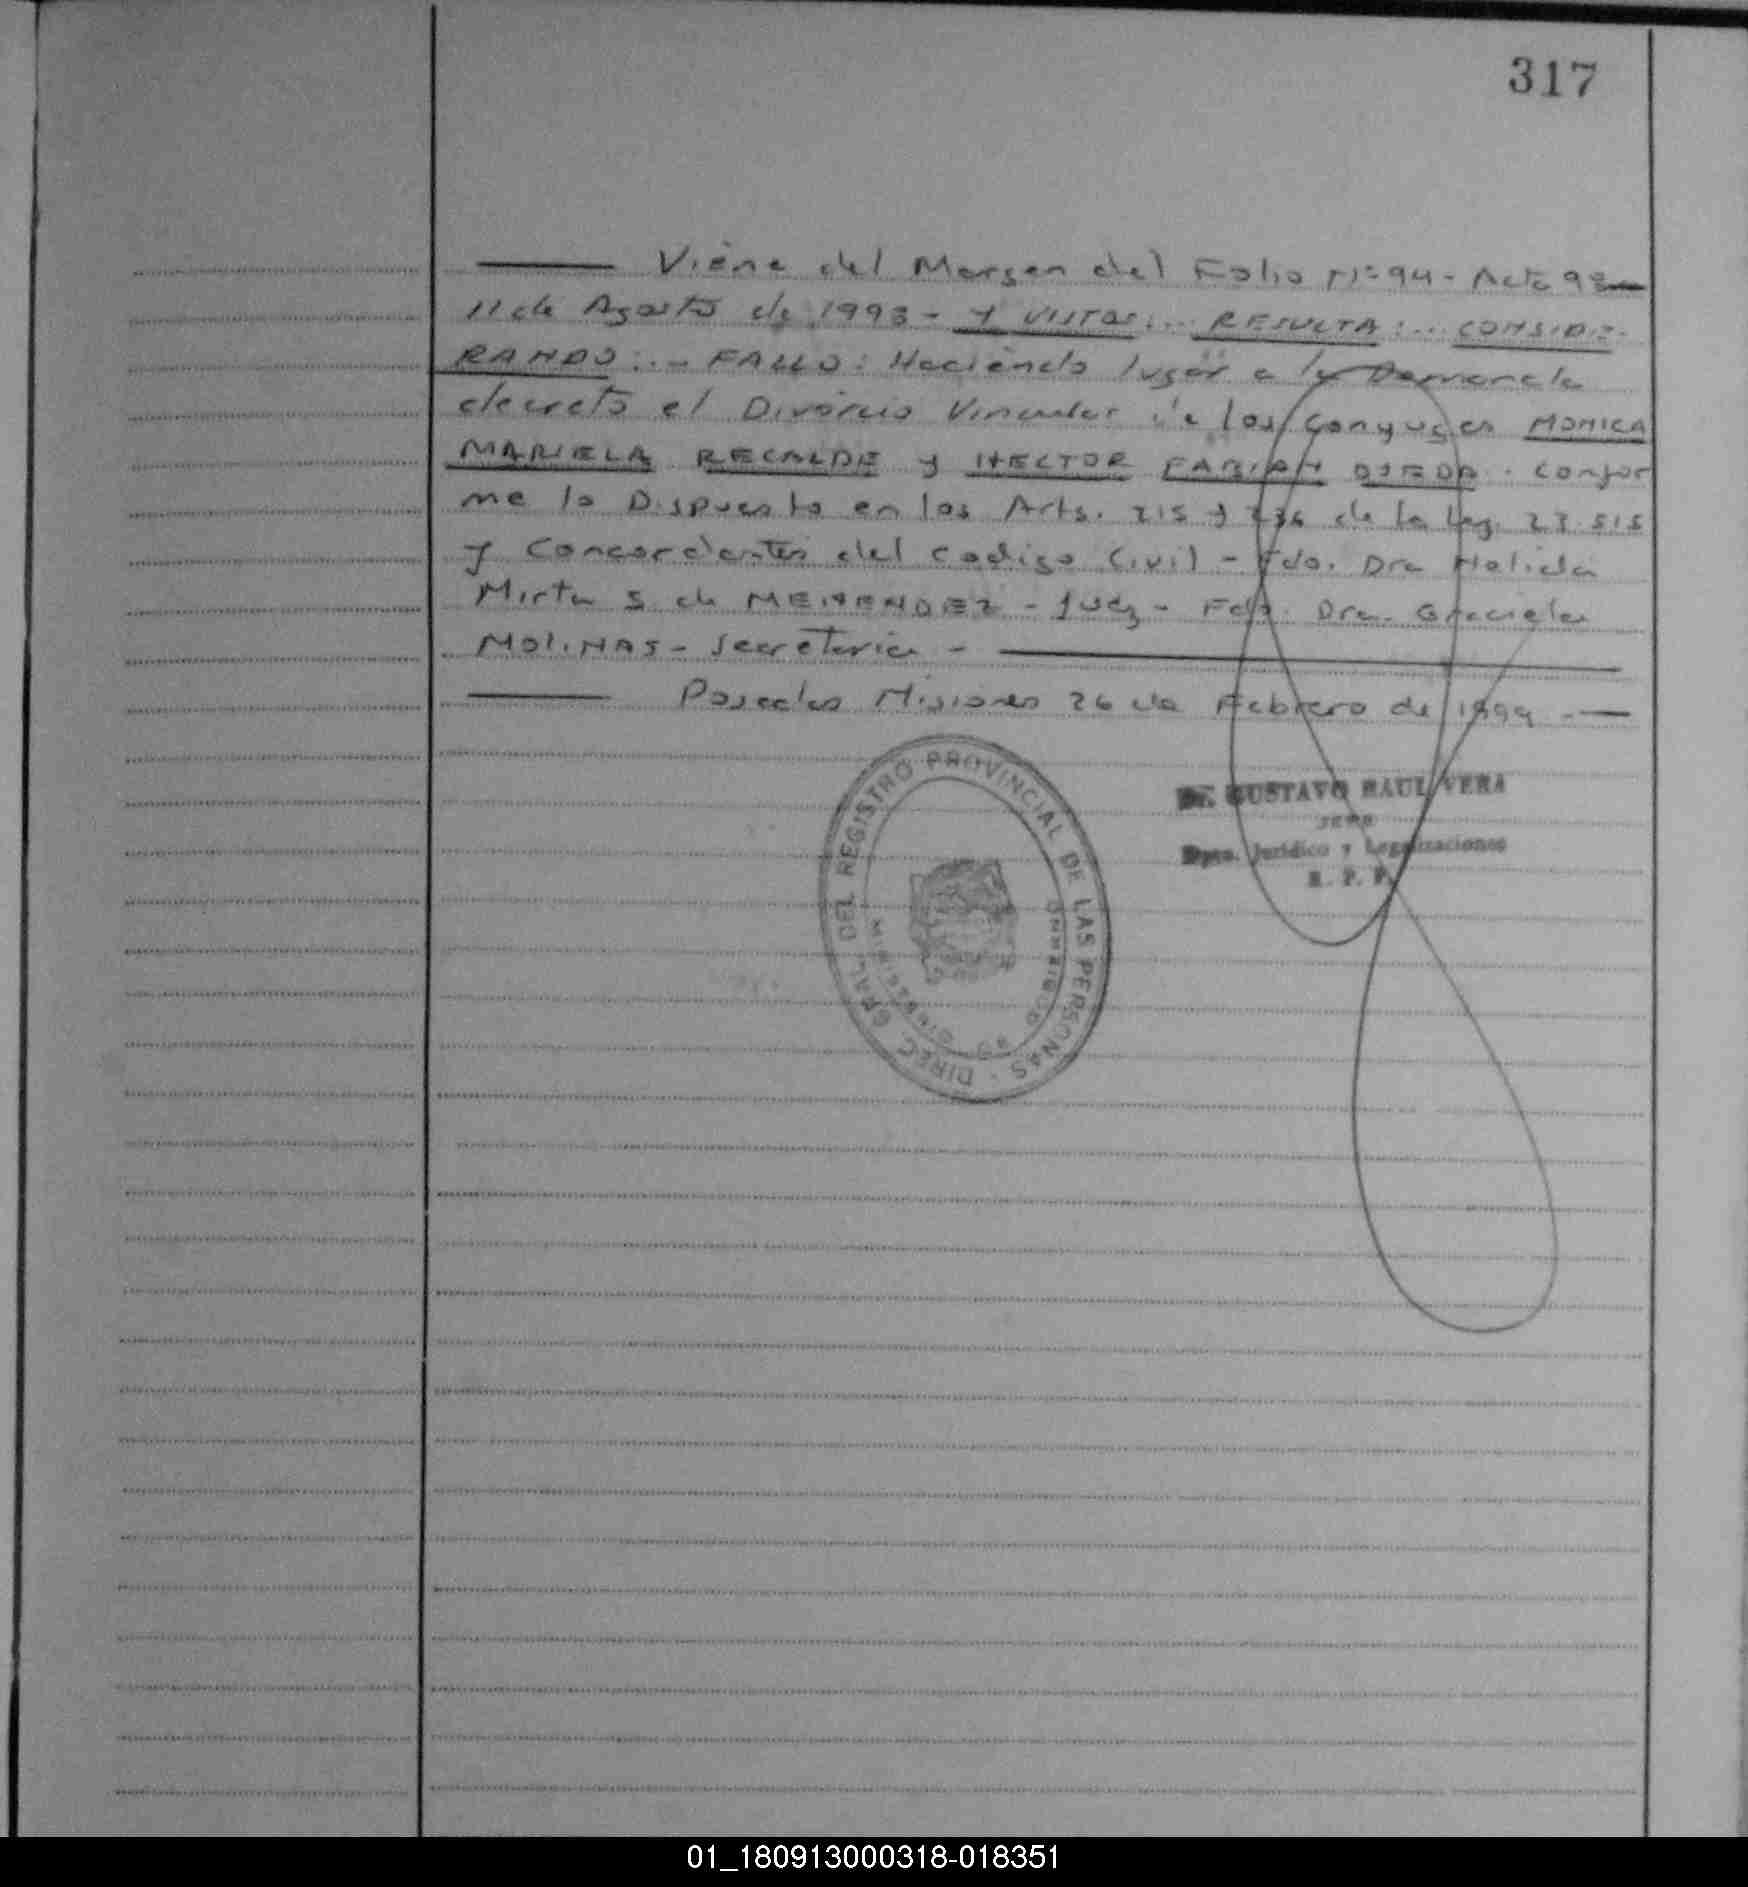 317
Viene del Margen del Folio Nº 94 - Acta 98
11 de Agosto de 1993 - Y VISTOS:... RESULTA:... CONSIDE-
RANDO:.- FALLO: Haciendo lugar a la Demanda
decreto el Divorcio Vincular de los conyuges MONICA
MARIELA RECALDE y HECTOR FABIAN OJEDA. Confor
me lo Dispuesto en los Arts. 215 y 236 de la Ley 23.515
y Concordantes del Codigo Civil - Fdo. Dra
Mirta S. de MENENDEZ - Juez - Fdo. Dra. Graciela
MOLINAS - Secretaria -
Posadas Misiones 26 de Febrero de 1994 -
DIREC. GRAL. DEL REGISTRO PROVINCIAL DE LAS PERSONAS
MINISTERIO DE GOBIERNO
Dr. GUSTAVO RAUL VERA
JEFE
Dpto. Jurídico y Legalizaciones
R. P. P.
01_180913000318-018351